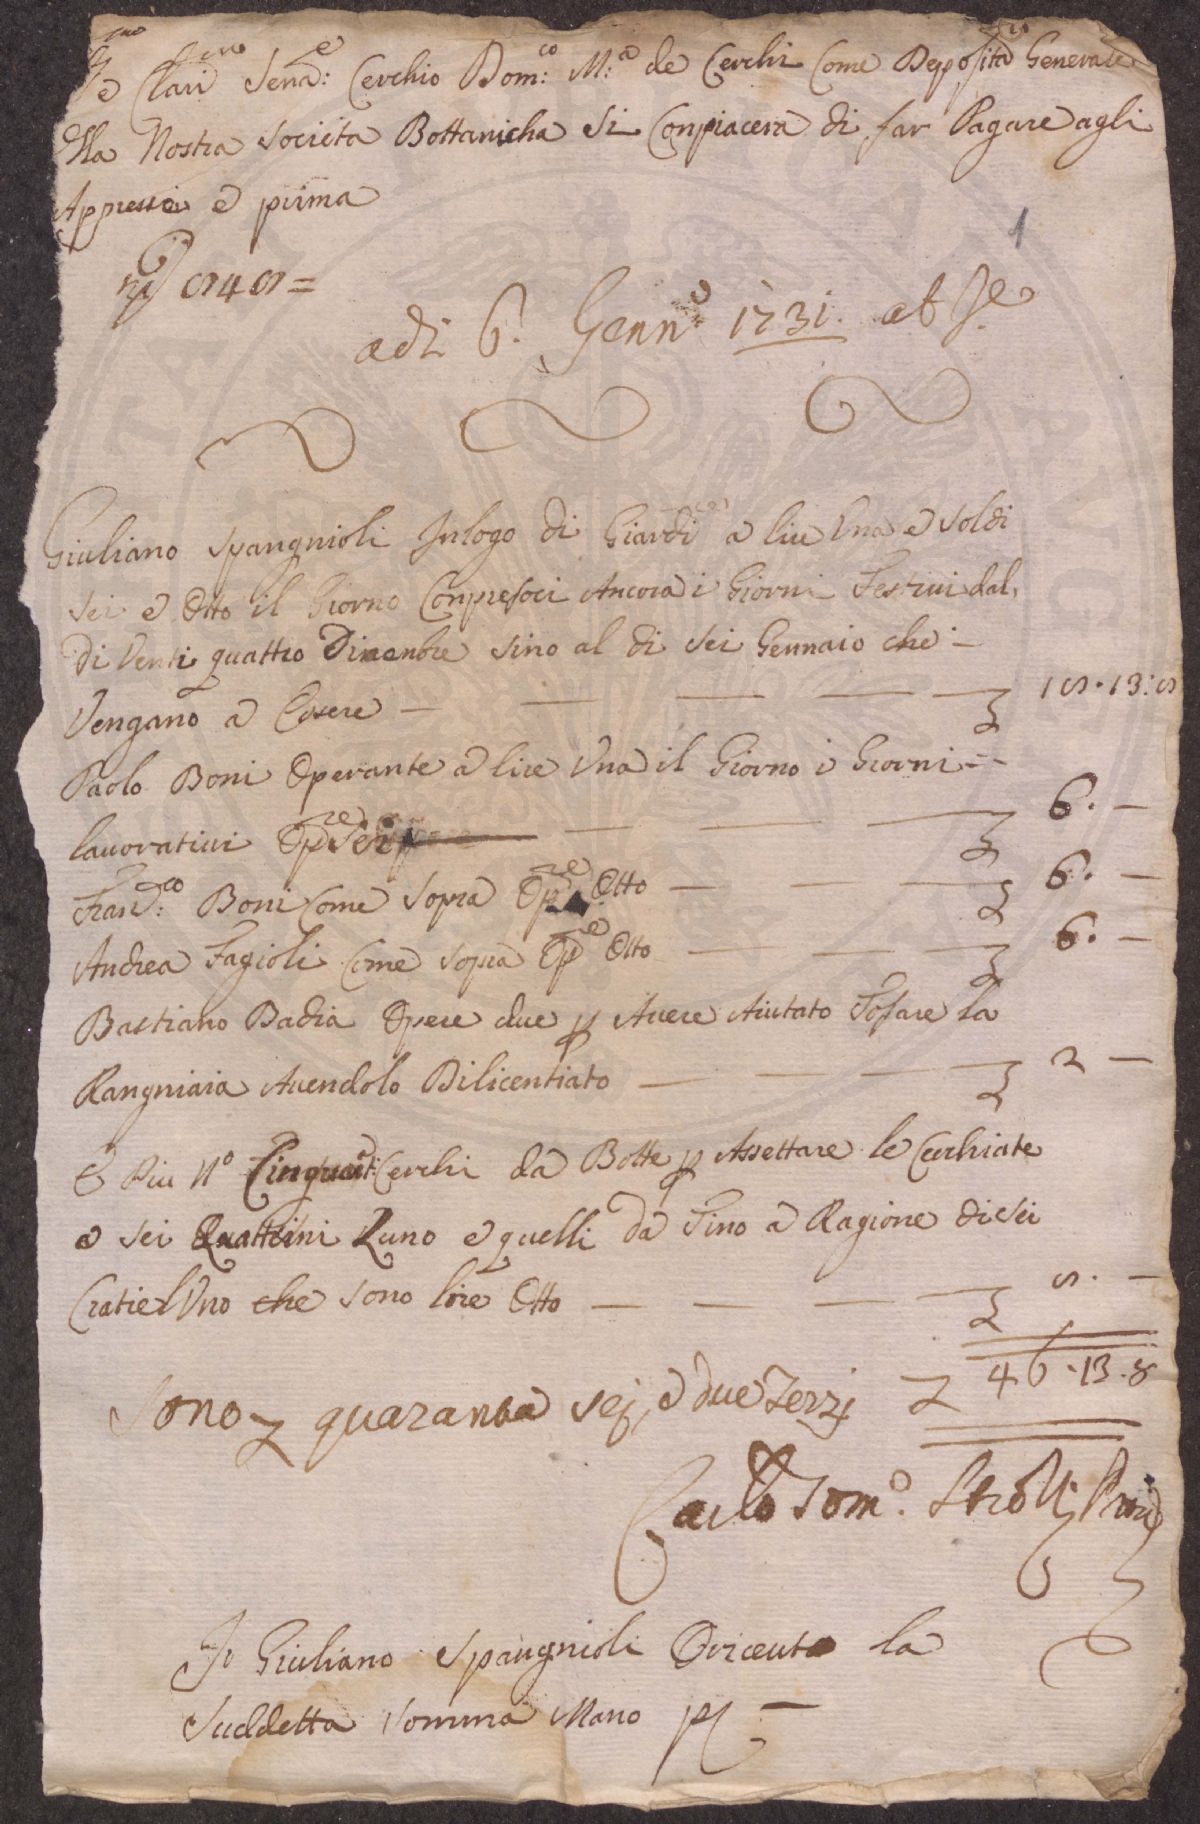 e Clari Sena: Cerchio Dom:co M:a de Cerchi Come Depposita Generale
lla Nostra Societa Bottanicha Si Conpiacera di far Pagare agli
Appresso e prima
1
adi 6. Genn:o 1731. ab I:e
Giuliano Spangnioli Inlogo di Giardi a lire Una e Soldi
Sei e Otto il Giorno Conpresoci Ancora i Giorni Festivi dal,
Di Venti quattro Dicenbre Sino al di Sei Gennaio che –
Vengano a Essere — 18.13:8
Paolo Boni Operante a lire Una il Giorno i Giorni =
lavorativi Op:re Sei — 6. —
Fran:co Boni Come Sopra Op:re Otto — 6. —
Andrea Fagioli Come Sopra Op:e Otto — 6. —
Bastiano Badia Opere due p Avere Aiutato Fosare la
Rangniaia Avendolo Dilicentiato — 2 —
E Piu N:o Cinquant: Cerchi da Botte p Assettare le Cerchiate
a Sei Quattrini Luno e quelli da Tino a Ragione di Sei
Cratie lUno che Sono lire Otto — 8. —
46.13.8
Sono quaranta sej, e due Terzj
Carlo Tom:o Strozzj Prov
Io Giuliano Spangnioli O ricevuto la
Suddetta Somma Mano p —